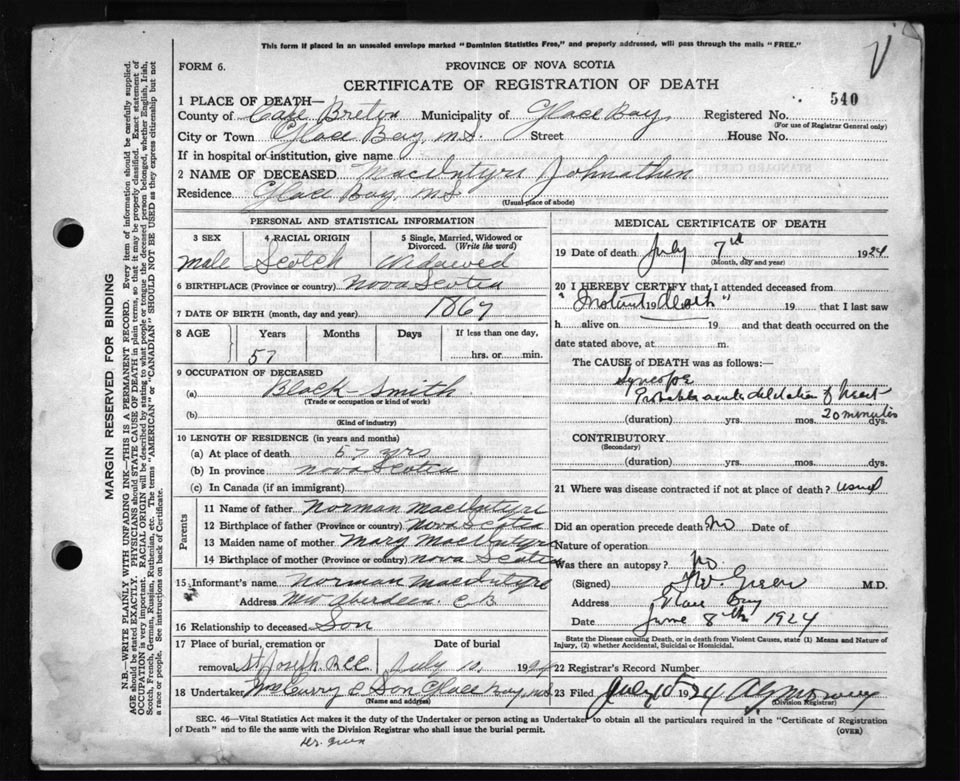 This form if placed in an unsealed envelope marked "Dominion Statistics Free," and properly addressed, will pass through the mails "FREE."
FORM 6.
PROVINCE OF NOVA SCOTIA
CERTIFICATE OF REGISTRATION OF DEATH
540
1 PLACE OF DEATH—
County of Cape Breton Municipality of Glace Bay, Registered No.
(For use of Registrar General only)
City or Town Glace Bay, Street House No.
If in hospital or institution, give name
2 NAME OF DECEASED MacIntyre Johnathen
Residence Glace Bay,
(Usual place of abode)
PERSONAL AND STATISTICAL INFORMATION
3 SEX 4 RACIAL ORIGIN 5 Single, Married, Widowed or Divorced. (Write the word)
Male Scotch Widowed
6 BIRTHPLACE (Province or country) Nova Scotia
7 DATE OF BIRTH (month, day and year) 1867
8 AGE Years Months Days If less than one day,
57 hrs. or min.
9 OCCUPATION OF DECEASED
(a) Black-Smith
(Trade or occupation or kind of work)
(b)
(Kind of industry)
10 LENGTH OF RESIDENCE (in years and months)
(a) At place of death 57 yrs
(b) In province Nova Scotia
(c) In Canada (if an immigrant)
Parents
11 Name of father Norman MacIntyre
12 Birthplace of father (Province or country) Nova Scotia
13 Maiden name of mother Mary MacIntyre
14 Birthplace of mother (Province or country) Nova Scotia
15 Informant's name Norman MacIntyre
Address New Aberdeen. C B
16 Relationship to deceased Son
17 Place of burial, cremation or removal Date of burial
St Joseph July 10. 1924
18 Undertaker Curry & Son Glace Bay,
(Name and address)
MEDICAL CERTIFICATE OF DEATH
19 Date of death July 7th 1924
(Month, day and year)
20 I HEREBY CERTIFY that I attended deceased from
"Instant death" 19 19 that I last saw
h alive on 19 and that death occurred on the
date stated above, at m.
The CAUSE of DEATH was as follows:
Syncope
Probable acute dilatation of heart
20 minutes
(duration) yrs. mos. dys.
CONTRIBUTORY
(Secondary)
(duration) yrs. mos. dys.
21 Where was disease contracted if not at place of death? usual
Did an operation precede death No Date of
Nature of operation
Was there an autopsy? No
(Signed) Green M.D.
Address Glace Bay
Date June 8th 1924
State the Disease causing Death, or in death from Violent Causes, state (1) Means and Nature of
Injury, (2) whether Accidental, Suicidal or Homicidal.
22 Registrar's Record Number
23 Filed July 10 1924
(Division Registrar)
SEC. 46—Vital Statistics Act makes it the duty of the Undertaker or person acting as Undertaker to obtain all the particulars required in the "Certificate of Registration
of Death" and to file the same with the Division Registrar who shall issue the burial permit.
(OVER)
Dr. Green
MARGIN RESERVED FOR BINDING
N.B.—WRITE PLAINLY WITH UNFADING INK—THIS IS A PERMANENT RECORD. Every item of information should be carefully supplied.
AGE should be stated EXACTLY. PHYSICIANS should STATE CAUSE OF DEATH in plain terms, so that it may be properly classified. Exact statement of
OCCUPATION is very important. RACIAL ORIGIN will be described by stating to what people or tongue the deceased person belonged, whether English, Irish,
Scotch, French, German, Russian, Ruthenian, etc. The terms "AMERICAN" or "CANADIAN" SHOULD NOT BE USED as they express citizenship but not
a race or people. See instructions on back of Certificate.